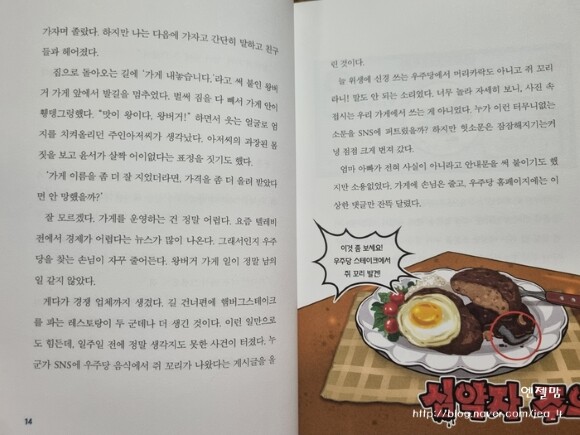 가자며 졸랐다. 하지만 나는 다음에 가자고 간단히 말하고 친구
들과 헤어졌다.
집으로 돌아오는 길에 '가게 내놓습니다.'라고 써 붙인 왕버
거 가게 앞에서 발길을 멈추었다. 벌써 짐을 다 빼서 가게 안이
휑뎅그렁했다. "맛이 왕이다. 왕버거!" 하면서 웃는 얼굴로 엄
지를 치켜올리던 주인아저씨가 생각났다. 아저씨의 과장된 몸
짓을 보고 윤서가 살짝 어이없다는 표정을 짓기도 했다.
'가게 이름을 좀 더 잘 지었더라면, 가격을 좀 더 올려 받았다
면 안 망했을까?'
잘 모르겠다. 가게를 운영하는 건 정말 어렵다. 요즘 텔레비
전에서 경제가 어렵다는 뉴스가 많이 나온다. 그래서인지 우주
당을 찾는 손님이 자꾸 줄어든다. 왕버거 가게 일이 정말 남의
일 같지 않았다.
게다가 경쟁 업체까지 생겼다. 길 건너편에 햄버그스테이크
를 파는 레스토랑이 두 군데나 더 생긴 것이다. 이런 일만으로
도 힘든데, 일주일 전에 정말 생각지도 못한 사건이 터졌다. 누
군가 SNS에 우주당 음식에서 쥐 꼬리가 나왔다는 게시글을 올
14
린 것이다.
늘 위생에 신경 쓰는 우주당에서 머리카락도 아니고 쥐 꼬리
라니! 말도 안 되는 소리였다. 너무 놀라 자세히 보니, 사진 속
접시는 우리 가게에서 쓰는 게 아니었다. 누가 이런 터무니없는
소문을 SNS에 퍼트렸을까? 하지만 헛소문은 잠잠해지기는커
녕 점점 크게 번져 갔다.
엄마 아빠가 전혀 사실이 아니라고 안내문을 써 붙이기도 했
지만 소용없었다. 가게에 손님은 줄고, 우주당 홈페이지에는 이
상한 댓글만 잔뜩 달렸다.
이것 좀 보세요!
우주당 스테이크에서
쥐 꼬리 발견!
심약자 주의
엔젤맘